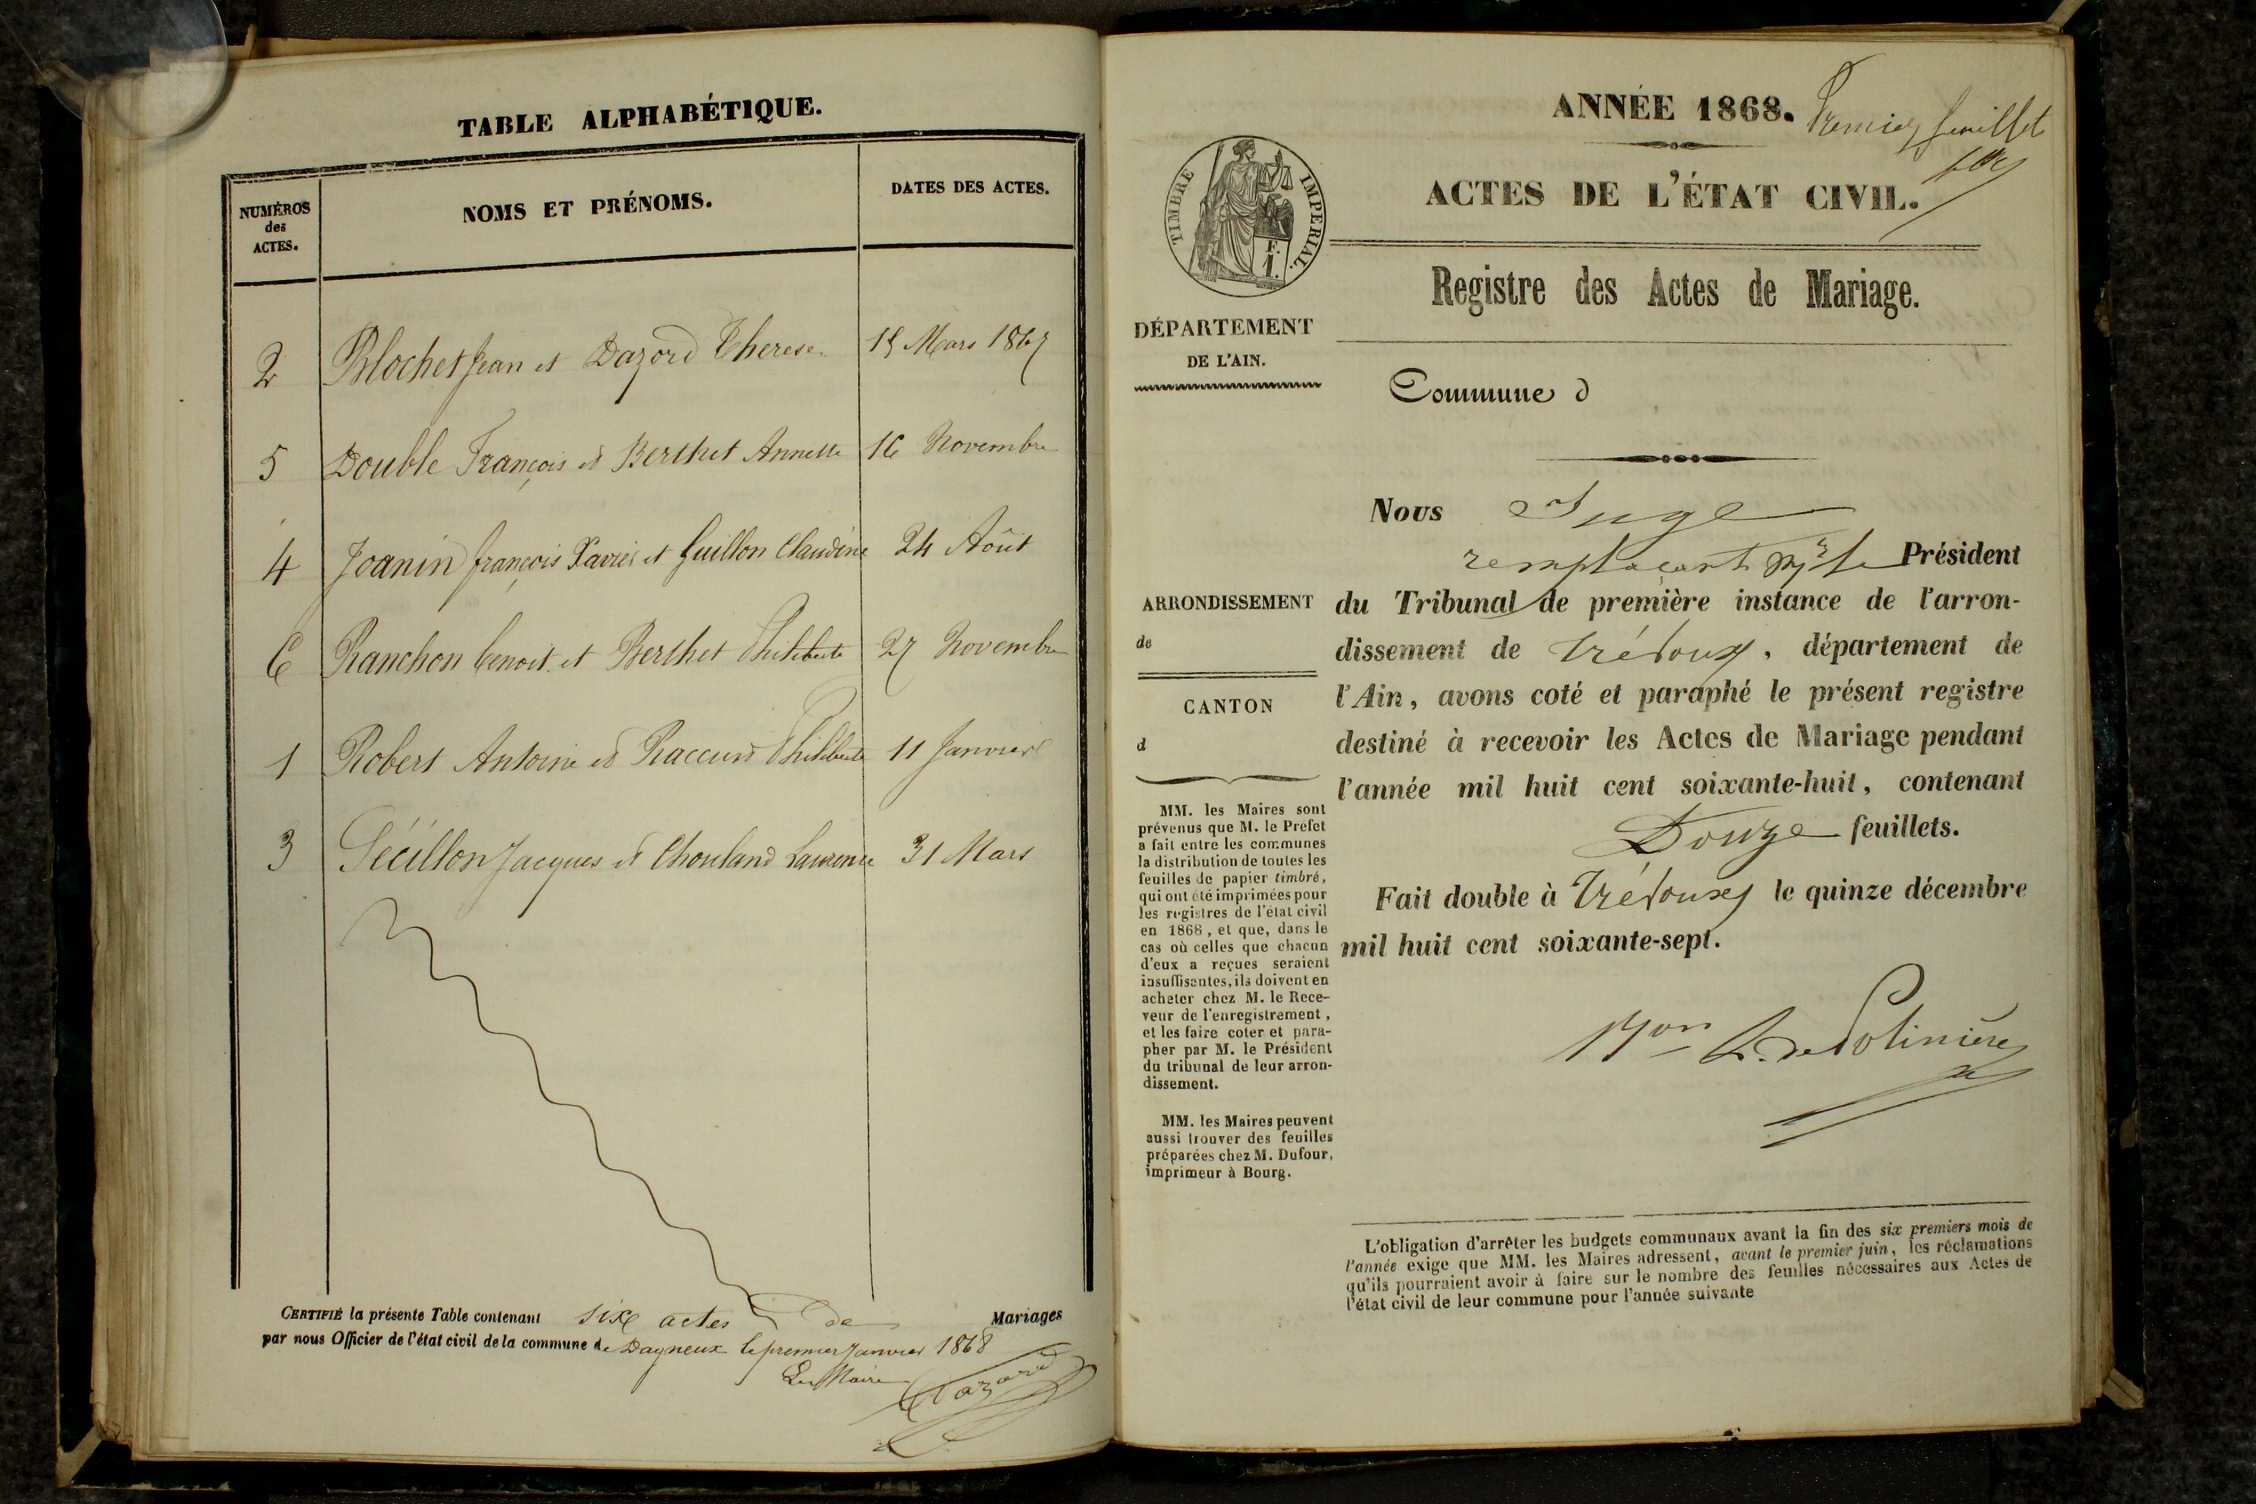 TABLE ALPHABÉTIQUE.
NUMÉROS
des
ACTES.
NOMS ET PRÉNOMS.
DATES DES ACTES.
2 Blochet Jean et Dazord Therese 15 Mars 1867
5 Double François et Berthet Annette 16 Novembre
4 Joanin françois Xavier et Guillon Claudine 24 Août
6 Ranchon benoit et Berthet Philiberte 27 Novembre
1 Robert Antoine et Raccurd Philiberte 11 Janvier
3 Sécillon Jacques et Chouland Laurence 31 Mars
CERTIFIÉ la présente Table contenant six actes de Mariages
par nous Officier de l'état civil de la commune de Dagneux le premier Janvier 1868
Le Maire
Dazord
ANNÉE 1868.
Premier feuillet
ACTES DE L'ÉTAT CIVIL.
TIMBRE IMPERIAL.
F.
1.
Registre des Actes de Mariage.
DÉPARTEMENT
DE L'AIN.
Commune d
Nous Juge
remplaçant Mr le Président
ARRONDISSEMENT
de
CANTON
d
du Tribunal de première instance de l'arron-
dissement de Trévoux, département de
l'Ain, avons coté et paraphé le présent registre
destiné à recevoir les Actes de Mariage pendant
l'année mil huit cent soixante-huit, contenant
Douze feuillets.
Fait double à Trévoux le quinze décembre
mil huit cent soixante-sept.
de Polinière
MM. les Maires sont
prévenus que M. le Préfet
a fait entre les communes
la distribution de toutes les
feuilles de papier timbré,
qui ont été imprimées pour
les registres de l'état civil
en 1868, et que, dans le
cas où celles que chacun
d'eux a reçues seraient
insuffisantes, ils doivent en
acheter chez M. le Rece-
veur de l'enregistrement,
et les faire coter et para-
pher par M. le Président
du tribunal de leur arron-
dissement.
MM. les Maires peuvent
aussi trouver des feuilles
préparées chez M. Dufour,
imprimeur à Bourg.
L'obligation d'arrêter les budgets communaux avant la fin des six premiers mois de
l'année exige que MM. les Maires adressent, avant le premier juin, les réclamations
qu'ils pourraient avoir à faire sur le nombre des feuilles nécessaires aux Actes de
l'état civil de leur commune pour l'année suivante